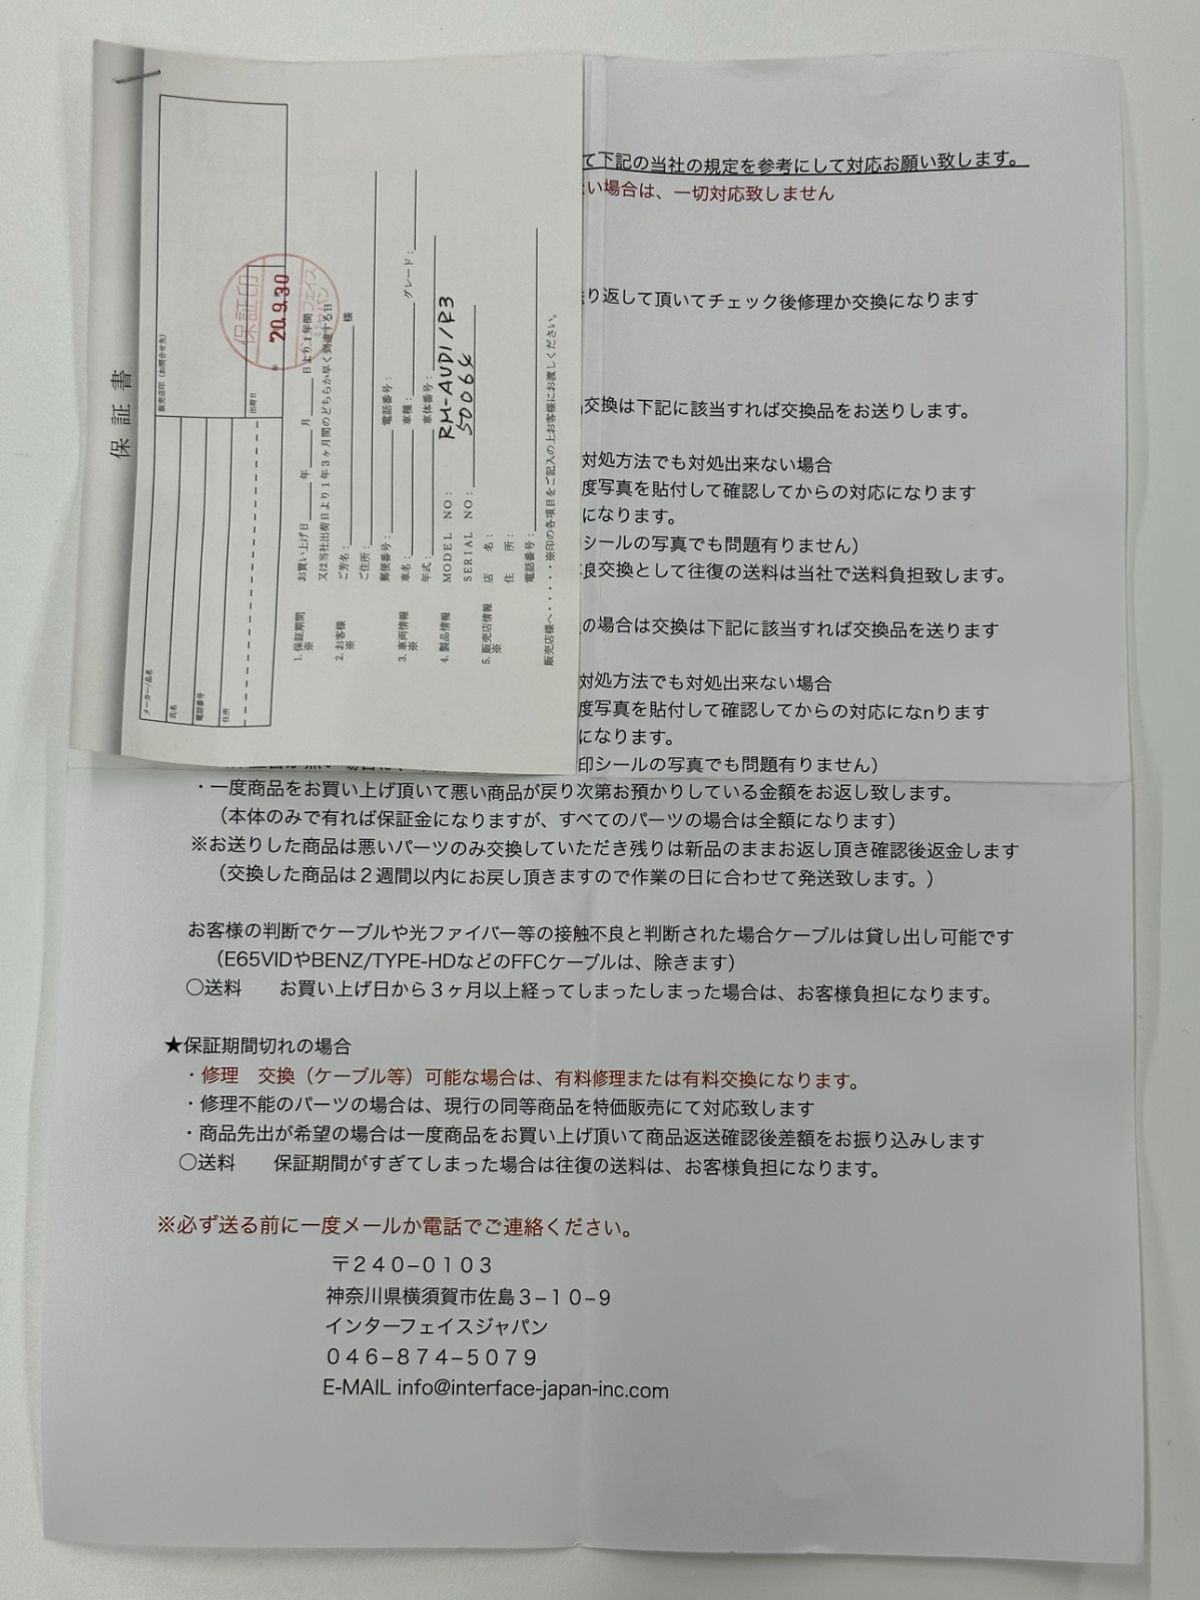 保証書
メーカー/品名
氏名
電話番号
住所
販売店印(お問合せ先)
出荷日
年
保証印
20.9.30
インターフェイスジャパン
1. 保証期間 お買い上げ日 年 月 日より1年間
※ 又は当社出荷日より1年3ヶ月間のどちらか早く到達する日
2. お客様 ご芳名: 様
※ ご住所:
郵便番号: 電話番号:
3. 車両情報 車名: 車種: グレード:
※ 年式: 車体番号:
4. 製品情報 MODEL NO: RM-AUDI/P3
SERIAL NO: 5006
5. 販売店情報 店 名:
※ 住 所:
電話番号:
販売店様へ・・・・・※印の各項目をご記入の上お客様にお渡しください。
て下記の当社の規定を参考にして対応お願い致します。
い場合は、一切対応致しません
り返して頂いてチェック後修理か交換になります
交換は下記に該当すれば交換品をお送りします。
対処方法でも対処出来ない場合
度写真を貼付して確認してからの対応になります
になります。
シールの写真でも問題有りません)
良交換として往復の送料は当社で送料負担致します。
の場合は交換は下記に該当すれば交換品を送ります
対処方法でも対処出来ない場合
度写真を貼付して確認してからの対応になnります
になります。
印シールの写真でも問題有りません)
・一度商品をお買い上げ頂いて悪い商品が戻り次第お預かりしている金額をお返し致します。
(本体のみで有れば保証金になりますが、すべてのパーツの場合は全額になります)
※お送りした商品は悪いパーツのみ交換していただき残りは新品のままお返し頂き確認後返金します
(交換した商品は2週間以内にお戻し頂きますので作業の日に合わせて発送致します。)
お客様の判断でケーブルや光ファイバー等の接触不良と判断された場合ケーブルは貸し出し可能です
(E65VIDやBENZ/TYPE-HDなどのFFCケーブルは、除きます)
○送料 お買い上げ日から3ヶ月以上経ってしまったしまった場合は、お客様負担になります。
★保証期間切れの場合
・修理 交換(ケーブル等)可能な場合は、有料修理または有料交換になります。
・修理不能のパーツの場合は、現行の同等商品を特価販売にて対応致します
・商品先出が希望の場合は一度商品をお買い上げ頂いて商品返送確認後差額をお振り込みします
○送料 保証期間がすぎてしまった場合は往復の送料は、お客様負担になります。
※必ず送る前に一度メールか電話でご連絡ください。
〒240-0103
神奈川県横須賀市佐島3-10-9
インターフェイスジャパン
046-874-5079
E-MAIL info@interface-japan-inc.com